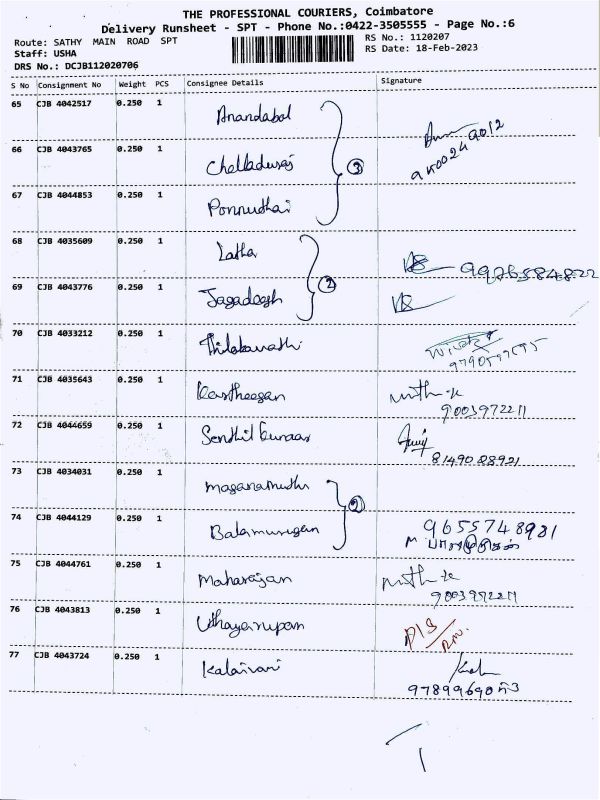 THE PROFESSIONAL COURIERS, Coimbatore
Delivery Runsheet - SPT - Phone No.:0422-3505555 - Page No.:6
Route: SATHY MAIN ROAD SPT
RS No.: 1120207
Staff: USHA
RS Date: 18-Feb-2023
DRS No.: DCJB112020706
S No Consignment No Weight PCS Consignee Details Signature
65 CJB 4042517 0.250 1 Anandabal
66 CJB 4043765 0.250 1 Chelladurai 3
67 CJB 4044853 0.250 1 Ponnuthai
68 CJB 4035609 0.250 1 Latha 9976584822
69 CJB 4043776 0.250 1 Jagadeesh 2
70 CJB 4033212 0.250 1 Thilakavathi
71 CJB 4035643 0.250 1 Kartheegan
9003972211
72 CJB 4044659 0.250 1 Senthil kumar
8149088921
73 CJB 4034031 0.250 1
2
74 CJB 4044129 0.250 1 Balamurugan 9655748981
75 CJB 4044761 0.250 1 Maharajan
9003972211
76 CJB 4043813 0.250 1
77 CJB 4043724 0.250 1 Kalaivani